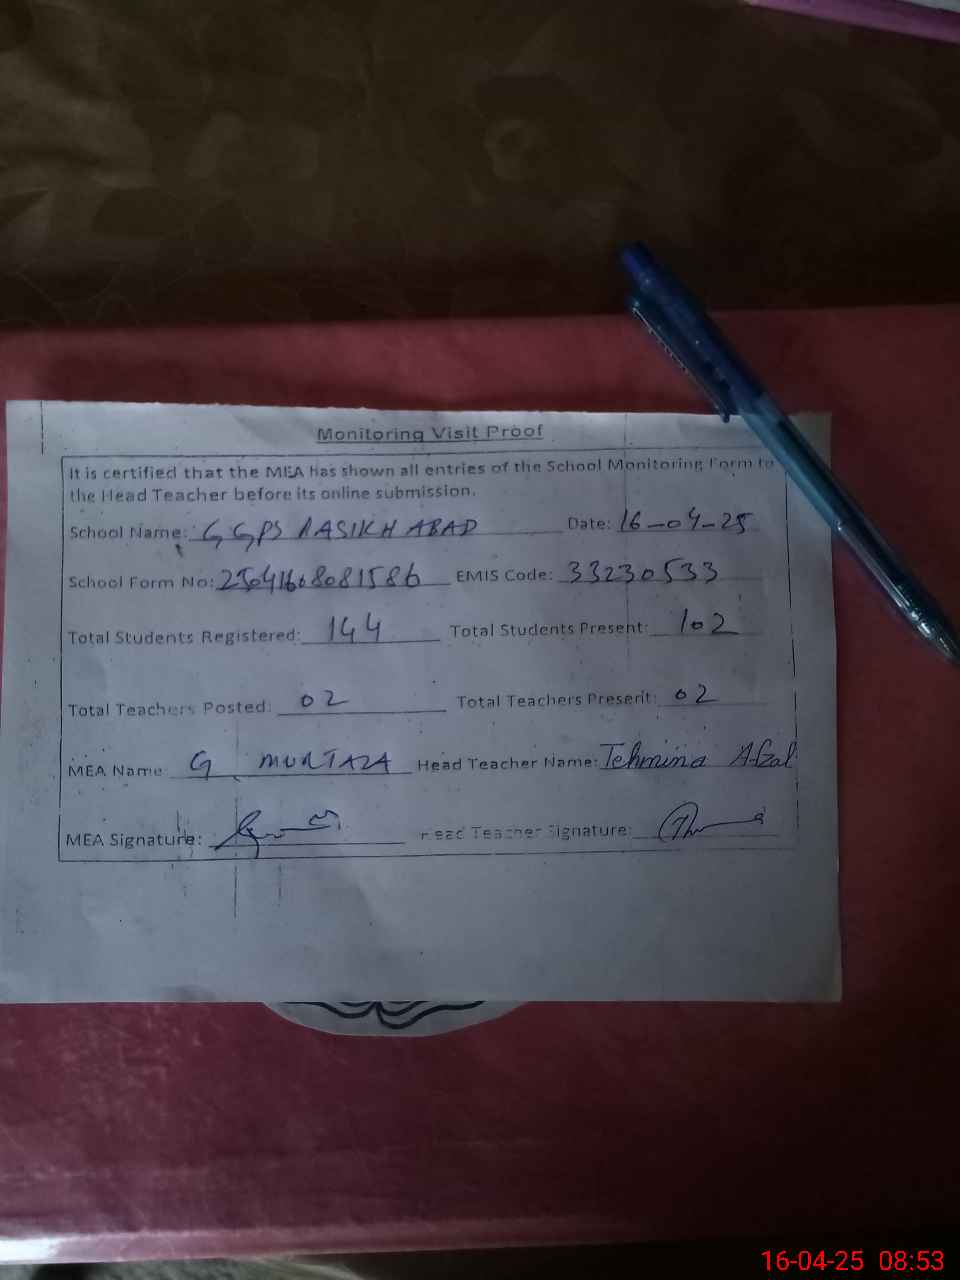 Monitoring Visit Proof
It is certified that the MEA has shown all entries of the School Monitoring Form to
the Head Teacher before its online submission.
School Name: GGPS RASIKH ABAD Date: 16-04-25
School Form No: 25041608081586 EMIS Code: 33230533
Total Students Registered: 144 Total Students Present: 102
Total Teachers Posted: 02 Total Teachers Present: 02
MEA Name G MURTAZA Head Teacher Name: Tehmina Afzal
MEA Signature: Head Teacher Signature:
16-04-25 08:53